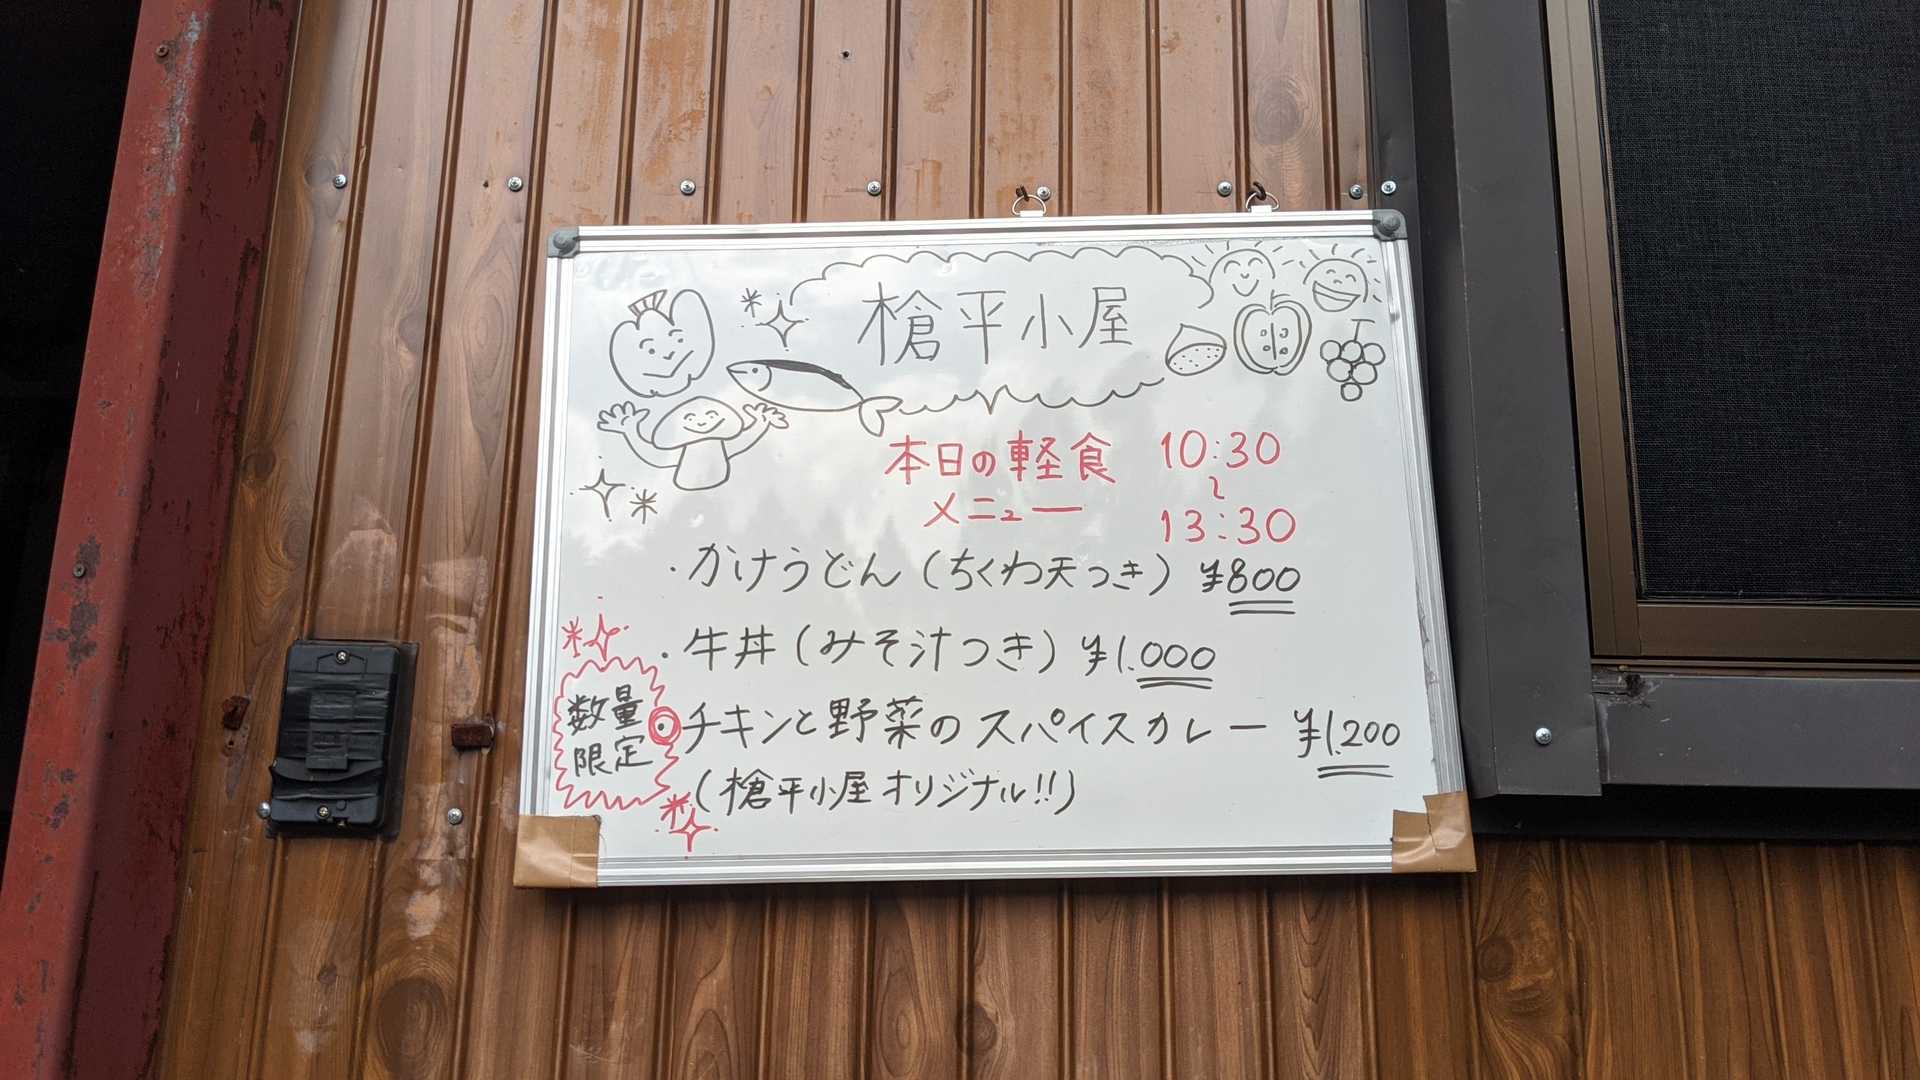 槍平小屋
本日の軽食
メニュー
10:30
〜
13:30
・かけうどん(ちくわ天つき) ¥800
・牛丼(みそ汁つき) ¥1.000
数量
限定
・チキンと野菜のスパイスカレー ¥1.200
(槍平小屋オリジナル!!)